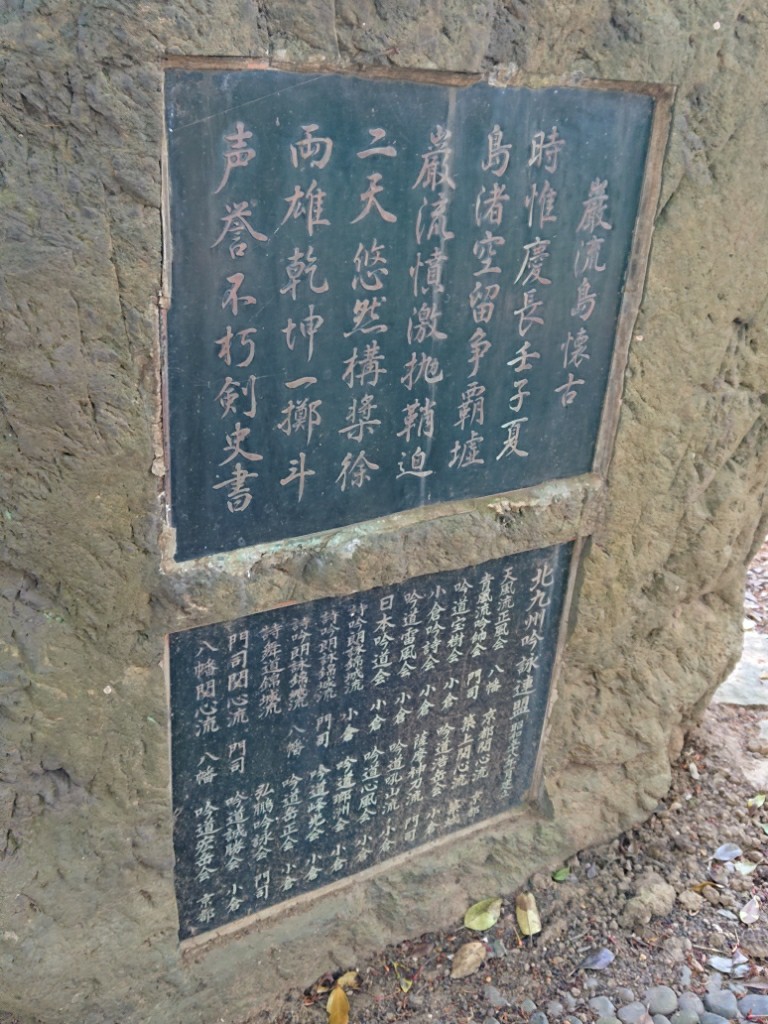 巌流島懐古
時惟慶長壬子夏
島渚空留争覇墟
巌流憤激抛鞘迫
二天悠然構槳徐
両雄乾坤一擲斗
声誉不朽剣史書
北九州吟詠連盟
天風流正風会 八幡
吟道宏樹会 門司
小倉吟詩会 小倉
吟道雷風会 小倉
日本吟道会 小倉
詩吟朗詠錦城流 小倉
詩吟朗詠錦城流 門司
詩吟朗詠錦城流 八幡
詩舞道錦城流
門司関心流 門司
八幡関心流 八幡
京都関心流 京都
吟道浩岳会 小倉
薩摩神刀流 門司
吟道吼山流 小倉
吟道心風会 小倉
吟道瑞洲会 小倉
吟道峰光会 小倉
吟道岳正会 小倉
弘鵬吟詠会 門司
吟道誠勝会 小倉
吟道宏岳会 京都